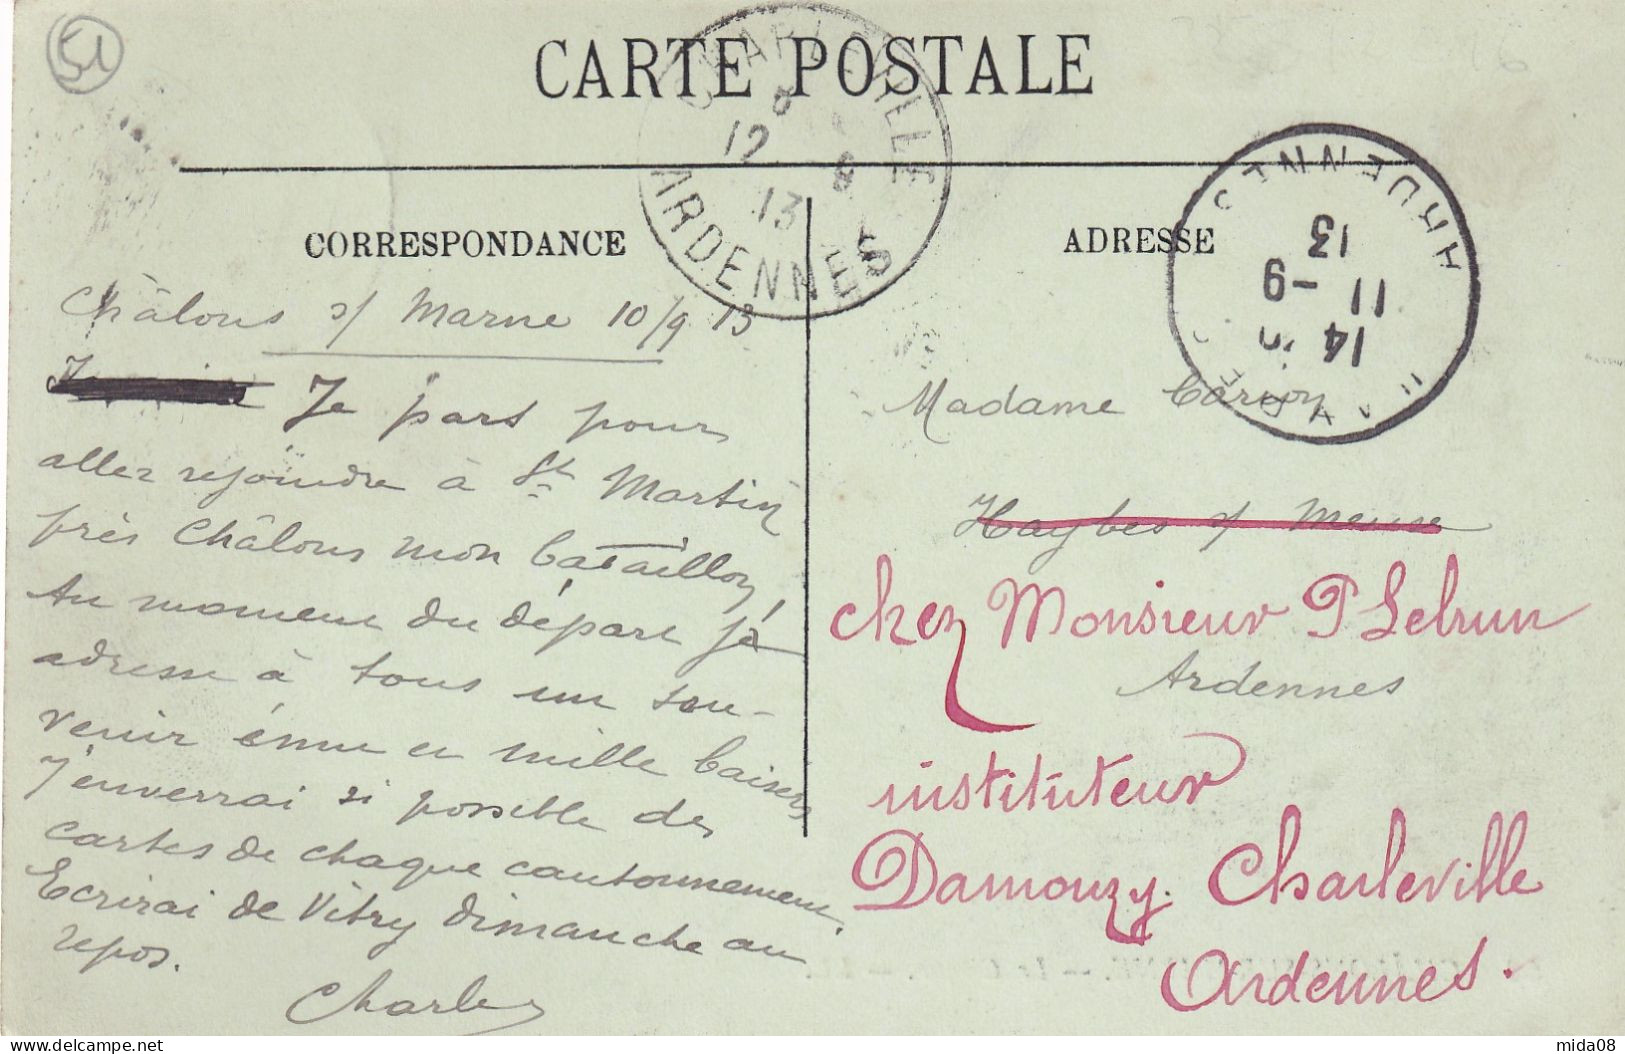 51
CARTE POSTALE
CHARLEVILLE
8
12 9
13
ARDENNES
ARDENNES
14
11 -9
13
CORRESPONDANCE
Châlons s/ Marne 10/9 13
Je pars pour
aller rejoindre à St Martin
près Châlons mon bataillon
Au moment du départ je
adresse à tous un sou-
venir ému et mille baisers
J'enverrai si possible des
cartes de chaque cantonnement.
Ecrirai de Vitry dimanche au
repos.
Charles
ADRESSE
Madame
Haybes s/ Meuse
chez Monsieur P Lebrun
Ardennes
instituteur
Damouzy. Charleville
Ardennes.
mida08